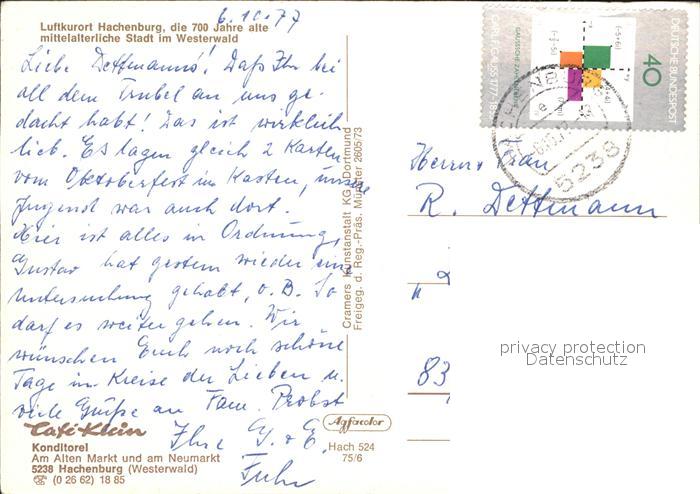 6.10.77
Luftkurort Hachenburg, die 700 Jahre alte
mittelalterliche Stadt im Westerwald
Liebe Dettmanns! Daß Ihr bei
all dem Trubel an uns ge-
dacht habt! Das ist wirklich
lieb. Es lagen gleich 2 Karten
vom Oktoberfest im Kasten, unsere
Jugend war auch dort.
Hier ist alles in Ordnung,
Gustav hat gestern wieder eine
Untersuchung gehabt, o. B. So
darf es weiter gehen. Wir
wünschen Euch noch schöne
Tage im Kreise der Lieben u.
viele Grüße an Fam. Probst
Ihre G. + E.
Fuhr
Café Klein
Konditorei
Am Alten Markt und am Neumarkt
5238 Hachenburg (Westerwald)
☎ (0 26 62) 18 85
Cramers Kunstanstalt KG, Dortmund
Freigeg. d. Reg.-Präs. Münster 2605/73
Agfacolor
Hach 524
75/6
DEUTSCHE BUNDESPOST
40
GAUSSSCHE ZAHLENEBENE
5238
Herrn + Frau
R. Dettmann
83
privacy protection
Datenschutz